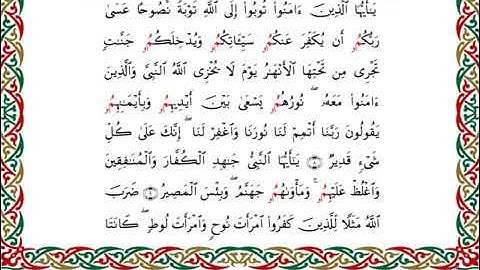 يَٰٓأَيُّهَا ٱلَّذِينَ ءَامَنُوا۟ تُوبُوا۟ إِلَى ٱللَّهِ تَوْبَةً نَّصُوحًا عَسَىٰ
رَبُّكُمُۥ أَن يُكَفِّرَ عَنكُمُۥ سَيِّـَٔاتِكُمُۥ وَيُدْخِلَكُمُۥ جَنَّٰتٍ
تَجْرِى مِن تَحْتِهَا ٱلْأَنْهَٰرُ يَوْمَ لَا يُخْزِى ٱللَّهُ ٱلنَّبِىَّ وَٱلَّذِينَ
ءَامَنُوا۟ مَعَهُۥ ۖ نُورُهُمُۥ يَسْعَىٰ بَيْنَ أَيْدِيهِمُۥ وَبِأَيْمَٰنِهِمُۥ
يَقُولُونَ رَبَّنَا أَتْمِمْ لَنَا نُورَنَا وَٱغْفِرْ لَنَا ۖ إِنَّكَ عَلَىٰ كُلِّ
شَىْءٍ قَدِيرٌ ۝٨ يَٰٓأَيُّهَا ٱلنَّبِىُّ جَٰهِدِ ٱلْكُفَّارَ وَٱلْمُنَٰفِقِينَ
وَٱغْلُظْ عَلَيْهِمُۥ ۚ وَمَأْوَىٰهُمُۥ جَهَنَّمُ ۖ وَبِئْسَ ٱلْمَصِيرُ ۝٩ ضَرَبَ
ٱللَّهُ مَثَلًا لِّلَّذِينَ كَفَرُوا۟ ٱمْرَأَتَ نُوحٍ وَٱمْرَأَتَ لُوطٍ ۖ كَانَتَا